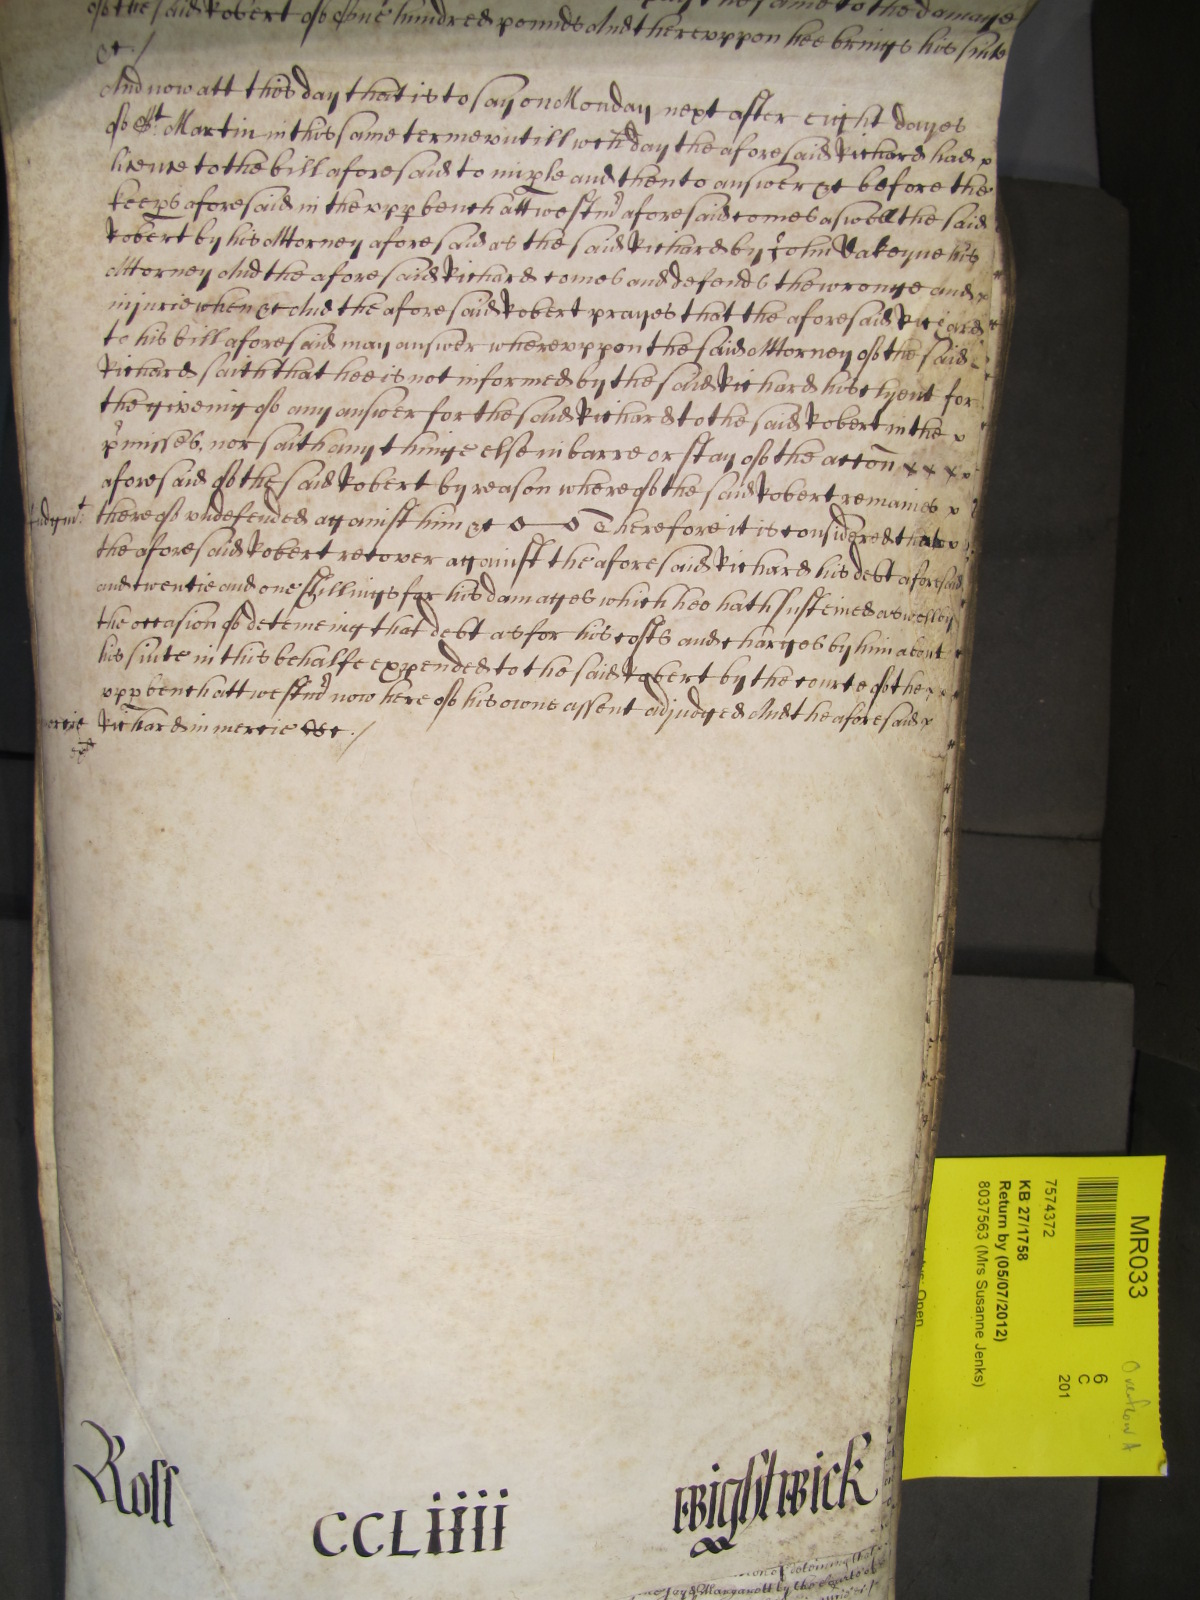 of the said Robert of One hundred pounds And thereuppon hee brings his suite
&c /
And now att this day that is to say on Monday next after eight dayes
of St Martin in this same terme untill wch day the aforesaid Richard had
licence to the bill aforesaid to imple and then to answer &c before the
keeps aforesaid in the upp bench att westmr aforesaid comes aswell the said
Robert by his Attorney aforesaid as the said Richard by John his
Attorney And the aforesaid Richard comes and defends the wronge and
injurie when &c And the aforesaid Robert prayes that the aforesaid Richard
to his bill aforesaid may answer whereuppon the said Attorney of the said
Richard saith that hee is not informed by the said Richard his clyent for
the giveing of any answer for the said Richard to the said Robert in the
pmisses, nor saith any thinge else in barre or stay of the accon x x x
aforesaid of the said Robert by reason whereof the said Robert remaines
Judgmt
thereof undefended against him &c Therefore it is considered that
the aforesaid Robert recover against the aforesaid Richard his debt aforesaid
and twentie and one shillings for his damages which hee hath susteined aswell by
the occasion of deteineing that debt as for his costs and charges by him about
his suite in this behalfe expended to the said Robert by the courte of the
upp bench att westmr now here of his owne assent adjudged And the aforesaid
mercie
Richard in mercie &c /
Ross
CCLiiii
Wightwick
Margarett by the Courte of
MR033
7574372
KB 27/1758
Return by (05/07/2012)
8037563 (Mrs Susanne Jenks)
6
C
201
Overflow A
Open